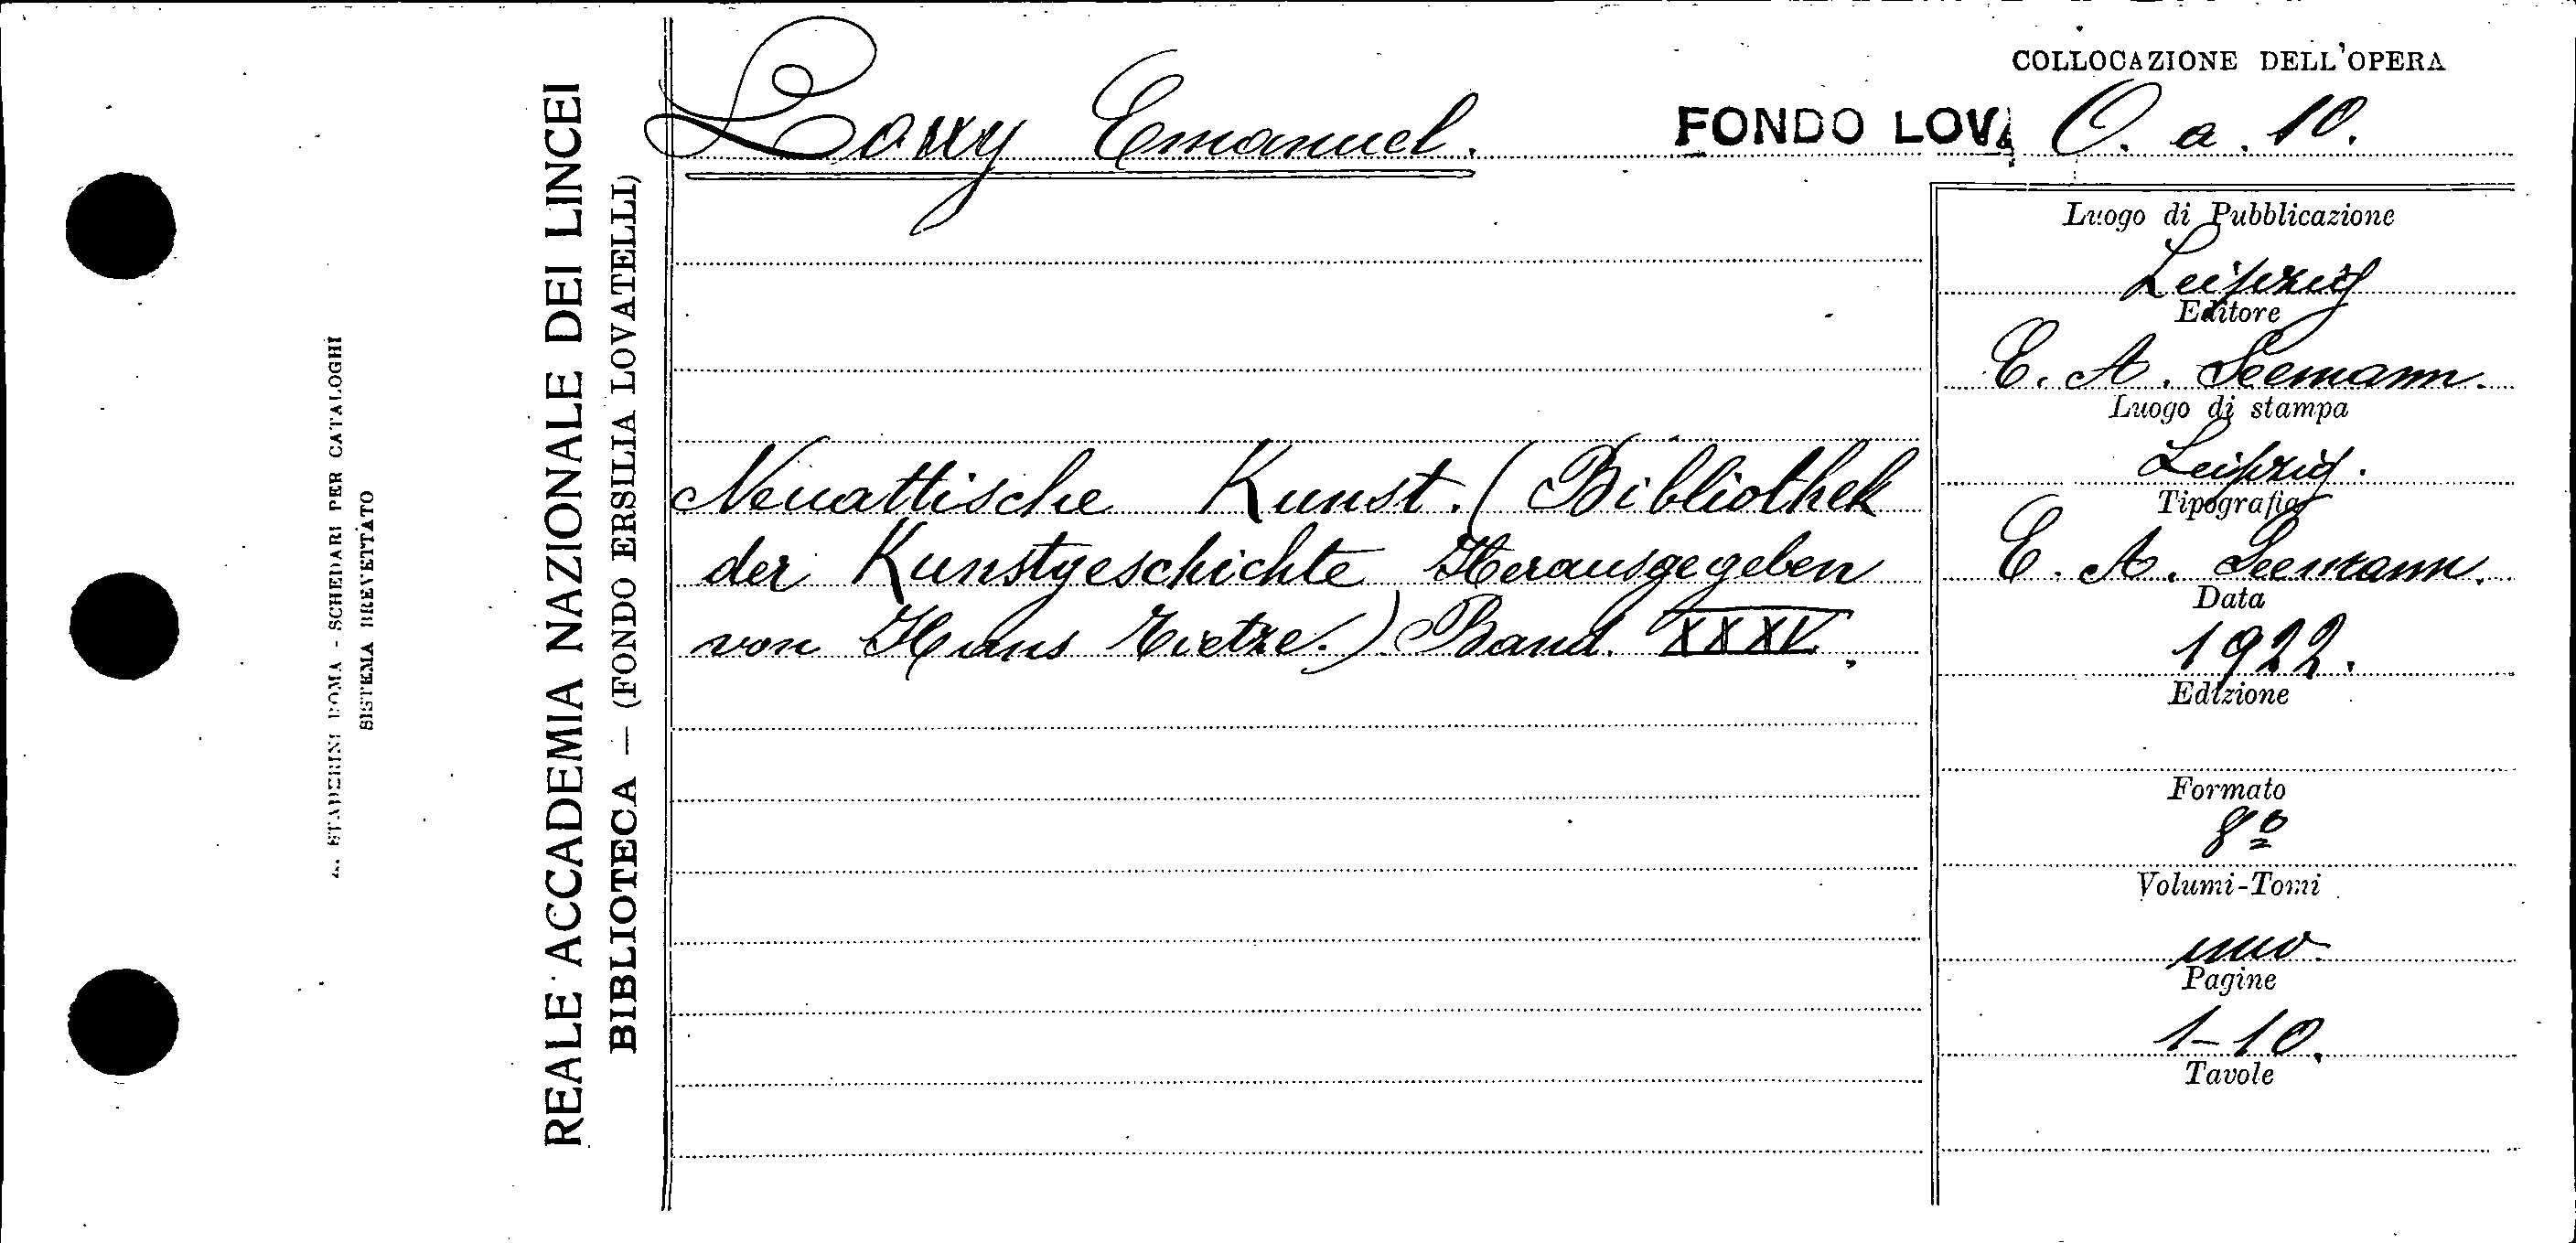 COLLOCAZIONE DELL'OPERA
Loewy Emanuel.
FONDO LOVA O. a. 10.
REALE ACCADEMIA NAZIONALE DEI LINCEI
BIBLIOTECA — (FONDO ERSILIA LOVATELLI)
STADERINI ROMA - SCHEDARI PER CATALOGHI
SISTEMA BREVETTATO
Neuattische Kunst. (Bibliothek
der Kunstgeschichte Herausgegeben
von Hans Tietze.) Band. XXXV.
Luogo di Pubblicazione
Leipzig
Editore
E. A. Seemann.
Luogo di stampa
Leipzig.
Tipografia
E. A. Seemann.
Data
1922.
Edizione
Formato
8º
Volumi-Tomi
uno
Pagine
1-10.
Tavole